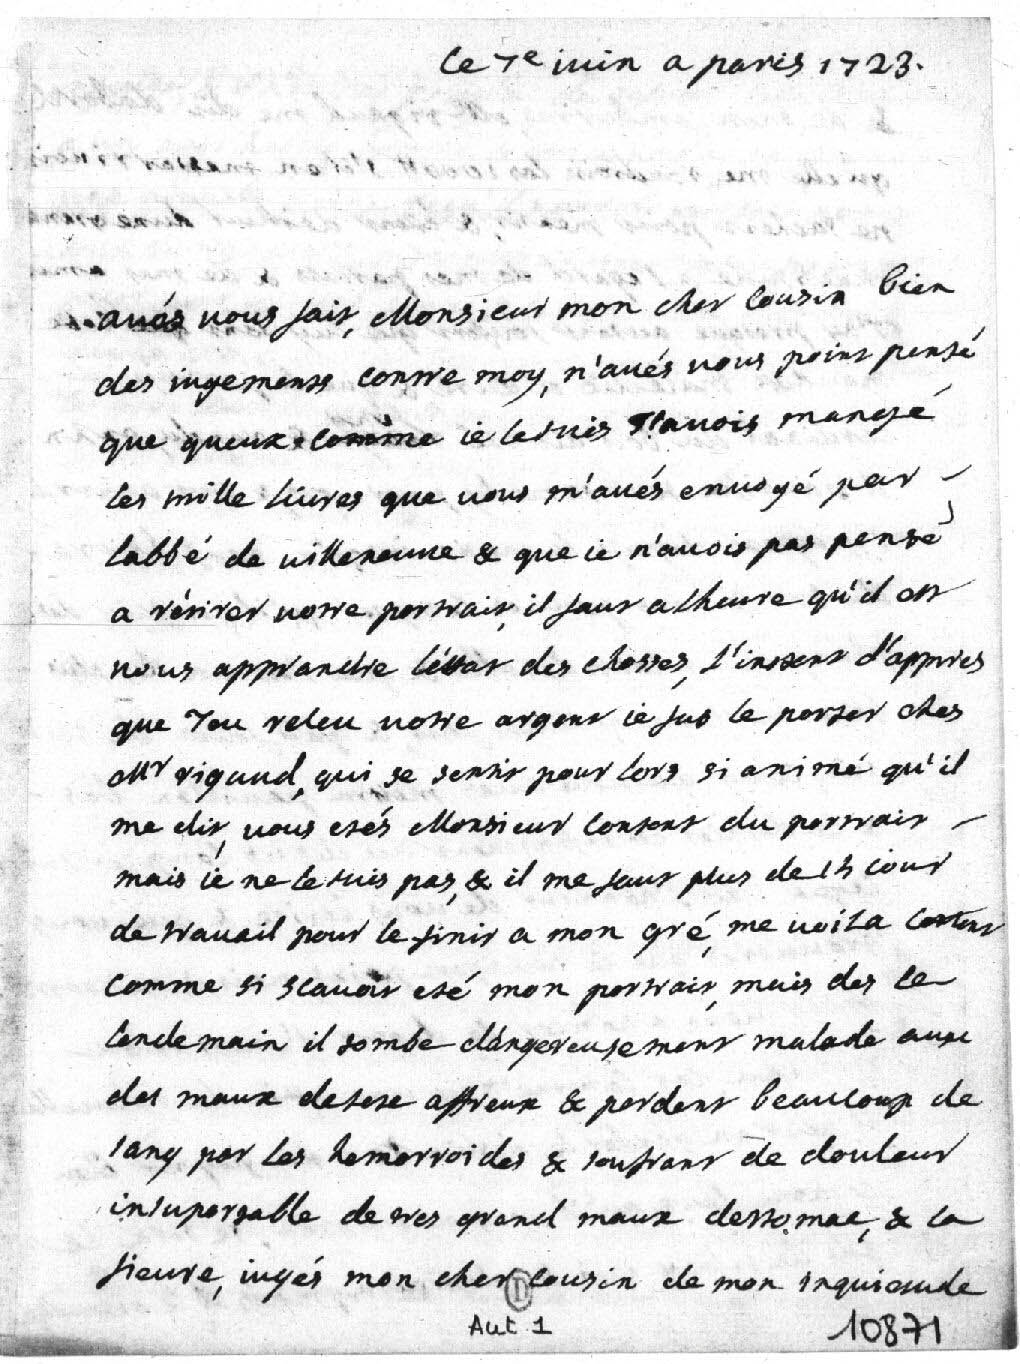 Ce 7e iuin a paris 1723.
avés vous fait, Monsieur mon cher cousin bien
des iugements contre moy, n'avés vous point pensé
que queux comme ie le suis i'avois mangé
les mille livres que vous m'avés envoyé par
l'abbé de villeneuve & que ie n'avois pas pensé
a rétirer votre portrait, il faut a lheure qu'il est
vous apprandre l'éttat des chosses, l'instent d'appres
que i'eu releu votre argent ie fus le porter ches
Mr rigaud, qui se sentit pour lors si animé qu'il
me dit, vous etés Monsieur content du portrait
mais ie ne le suis pas, & il me faut plus de 15 iour
de travail pour le finir a mon gré, me voila content
comme si scavoit eté mon portrait, mais des le
lendemain il tombe dangereusement malade avec
des maux de tete affreux & perdent beaucoup de
sang par les hemorroides & soufrant de douleur
insuportable de tres grand maux destomac, & la
fievre, iugés mon cher cousin de mon inquietude
Aut 1
10871